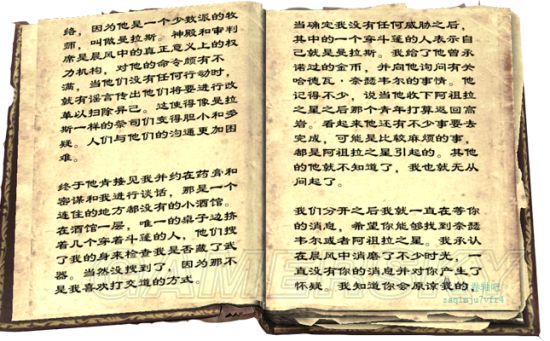 络，因为他是一个少数派的牧
师，叫做曼拉斯。神殿和审判
席是晨风中的真正意义上的权
力机构，对他的命令颇有不
满，当他们没有任何行动时，
就有谣言传出他们将要进行改
革以扫除异己。这使得像曼拉
斯一样的祭司们变得胆小和多
疑。人们与他们的沟通更加困
难。
终于他肯接见我并约在药膏和
密谋和我进行谈话，那是一个
连住的地方都没有的小酒馆。
在酒馆一层，唯一的桌子边挤
着几个穿着斗篷的人，他们搜
了我的身来检查我是否藏了武
器。当然没找到了，因为那不
是我喜欢打交道的方式。
当确定我没有任何威胁之后，
其中的一个穿斗篷的人表示自
己就是曼拉斯。我给了他曾承
诺过的金币，并向他询问有关
哈德瓦·奈瑟韦尔的事情。他
记得不少，说当他收下阿祖拉
之星之后那个青年打算返回高
岩。看起来他还有不少事要去
完成，可能是比较麻烦的事，
都是阿祖拉之星引起的。其他
的他就不知道了，我也就无从
问起了。
我们分开之后我就一直在等你
的消息，希望你能够找到奈瑟
韦尔或者阿祖拉之星。我承认
在晨风中消磨了不少时光，一
直没有你的消息并对你产生了
怀疑。我知道你会原谅我的，
GAMERSKY
zaqimju7vfr4